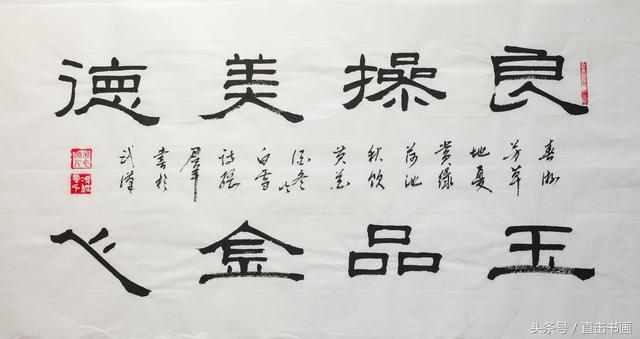 良操美德
春游
芳草
地夏
赏绿
荷池
秋饮
黄花
酒冬吟
白雪
诗
書於
武漢
玉品金心
头条号/直击书画